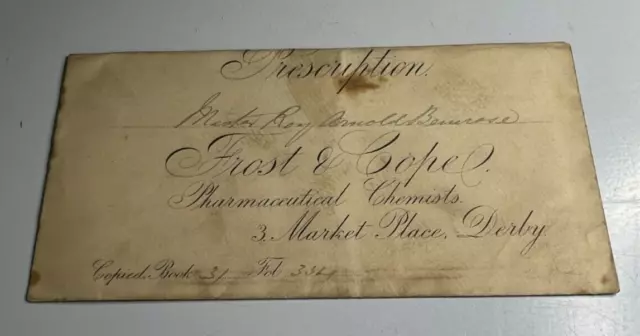 Prescription.
Master Roy Arnold Bemrose
Frost & Cope.
Pharmaceutical Chemists.
3, Market Place, Derby
Copied. Book 31 Fol